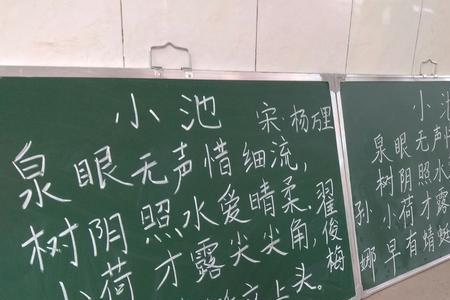 小池
宋·杨万里
泉眼无声惜细流,
树阴照水爱晴柔.
小荷才露尖尖角,
立上头.
翟俊梅
小池
泉眼无声
树阴照水
小荷才露
早有蜻蜓
孙娜